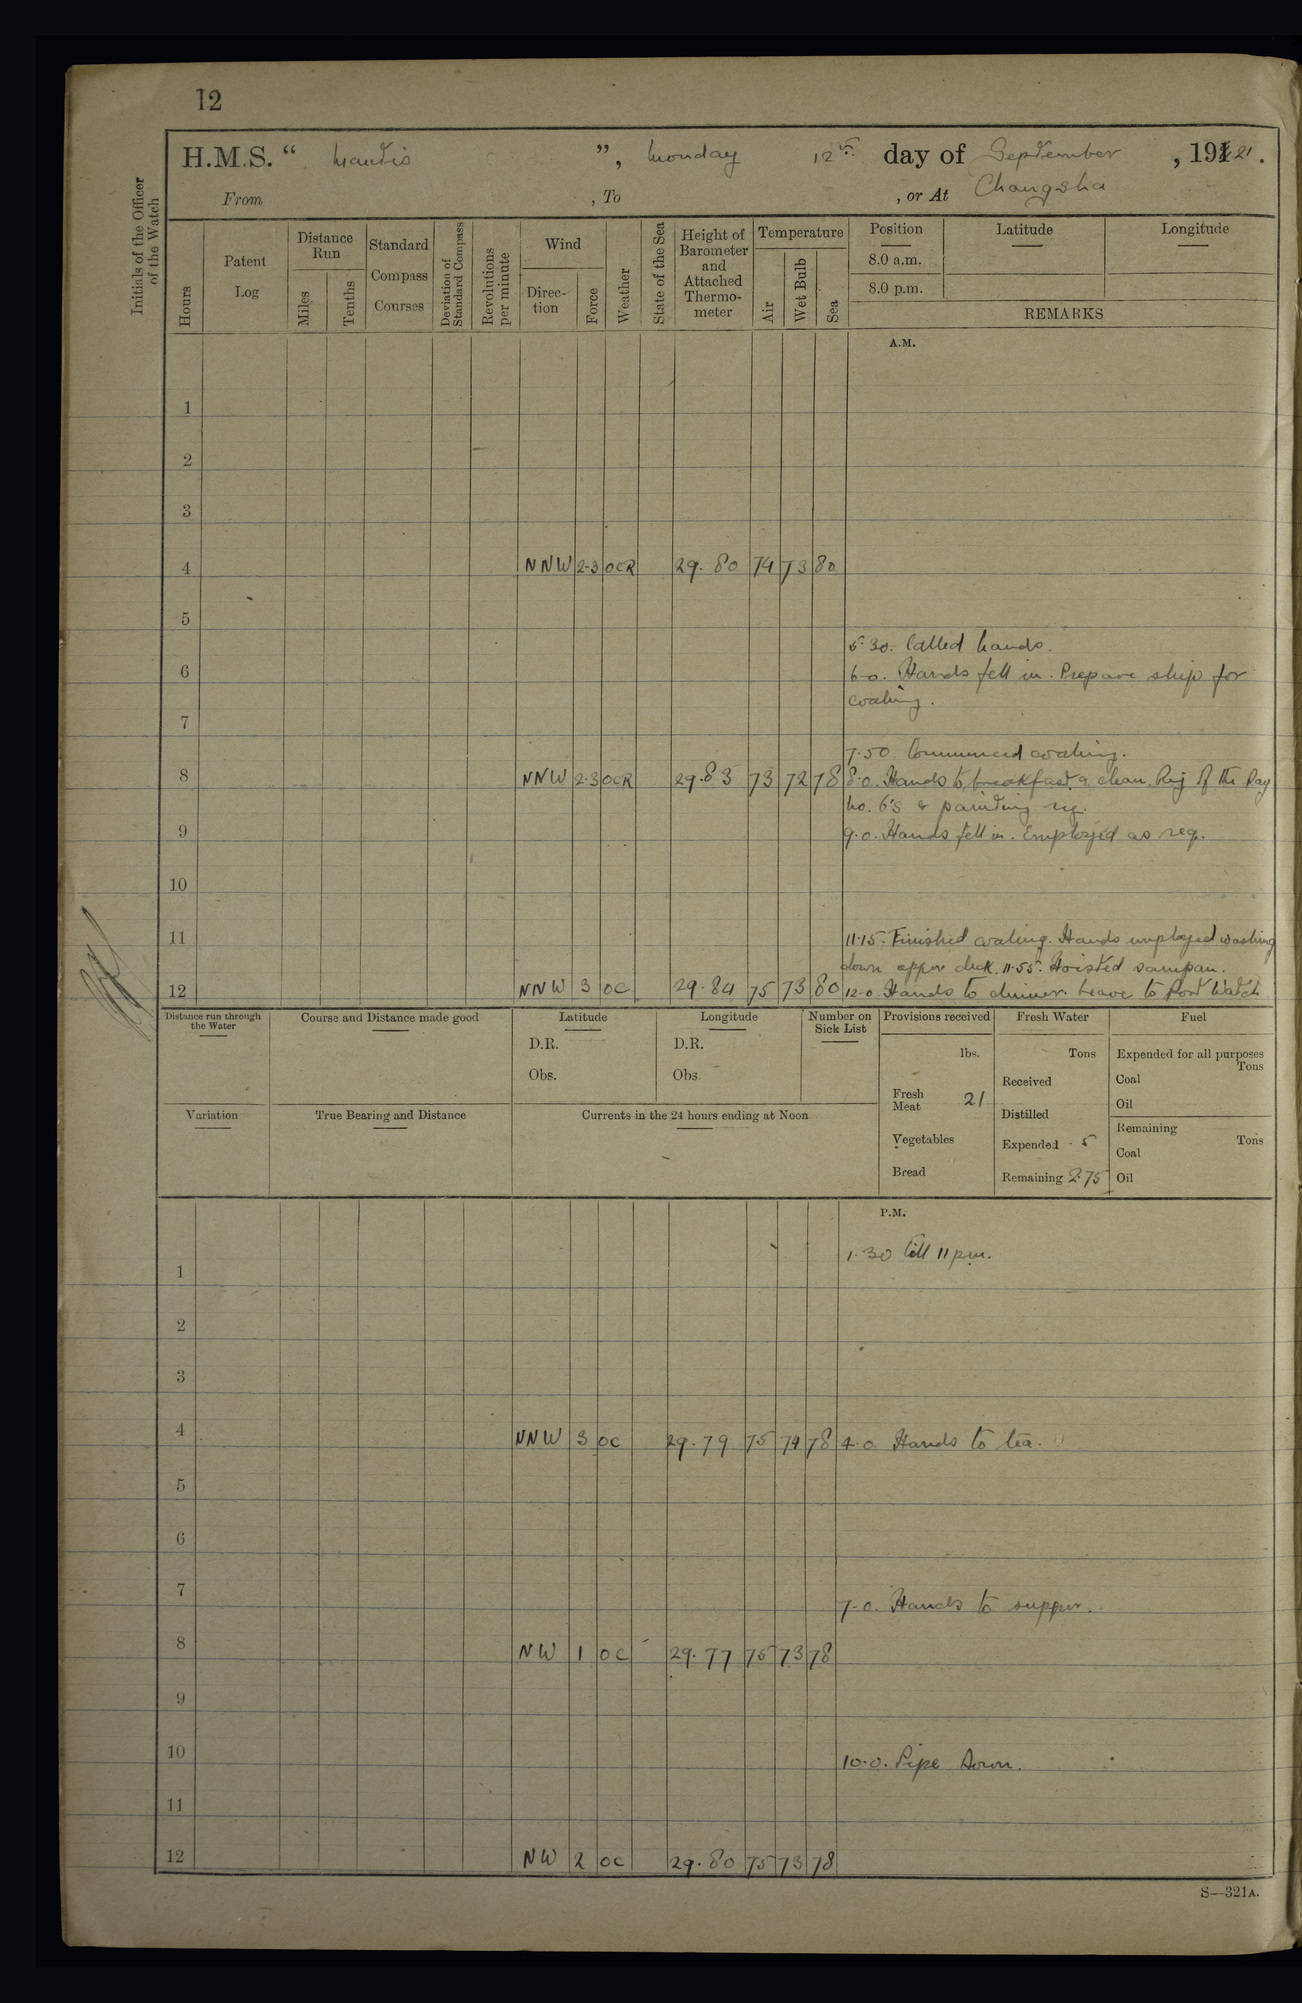 12
H.M.S. “ Mantis ”, Monday 12th day of September, 1921.
From , To , or At Changsha
Initials of the Officer of the Watch
Hours
Patent Log
Distance Run
Miles
Tenths
Standard Compass Courses
Deviation of Standard Compass
Revolutions per minute
Wind
Direction
Force
Weather
State of the Sea
Height of Barometer and Attached Thermometer
Temperature
Air
Wet Bulb
Sea
Position
8.0 a.m.
8.0 p.m.
Latitude
Longitude
REMARKS
A.M.
1
2
3
4 NNW 2-3 OCR 29.80 74 73 80
5
5.30. Called hands.
6 6.0. Hands fell in. Prepare ship for
coaling.
7
7.50 Commenced coaling.
8 NNW 2-3 OCR 29.83 73 72 78 8.0. Hands to breakfast & clean. Rig of the Day
No. 6's & painting rig.
9 9.0. Hands fell in. Employed as req.
10
11 11.15. Finished coaling. Hands employed washing
down upper deck. 11.55. Hoisted sampan.
12 NNW 3 OC 29.84 75 73 80 12.0. Hands to dinner. Leave to Port Watch
Distance run through the Water
Course and Distance made good
Latitude
D.R.
Obs.
Longitude
D.R.
Obs.
Number on Sick List
Provisions received
lbs.
Fresh Meat 21
Vegetables
Bread
Fresh Water
Tons
Received
Distilled
Expended .5
Remaining 2.75
Fuel
Expended for all purposes
Tons
Coal
Oil
Remaining
Tons
Coal
Oil
Variation
True Bearing and Distance
Currents in the 24 hours ending at Noon
P.M.
1.30 till 11 pm.
1
2
3
4 NNW 3 OC 29.79 75 74 78 4.0. Hands to tea.
5
6
7 7.0. Hands to supper.
8 NW 1 OC 29.77 75 73 78
9
10 10.0. Pipe Down.
11
12 NW 2 OC 29.80 75 73 78
S—321A.